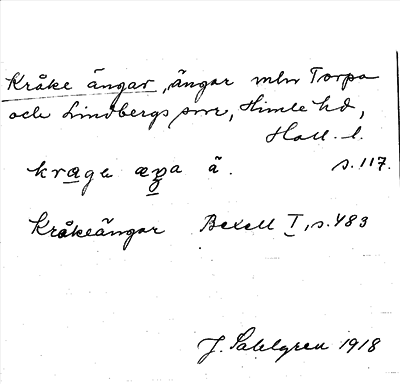 Kråke ängar, ängar mln Torpa
och Lindbergs snr, Himle hd,
Hall. l.
s. 117.
ä.
Kråkeängar Bexell I, s. 483
J. Sahlgren 1918